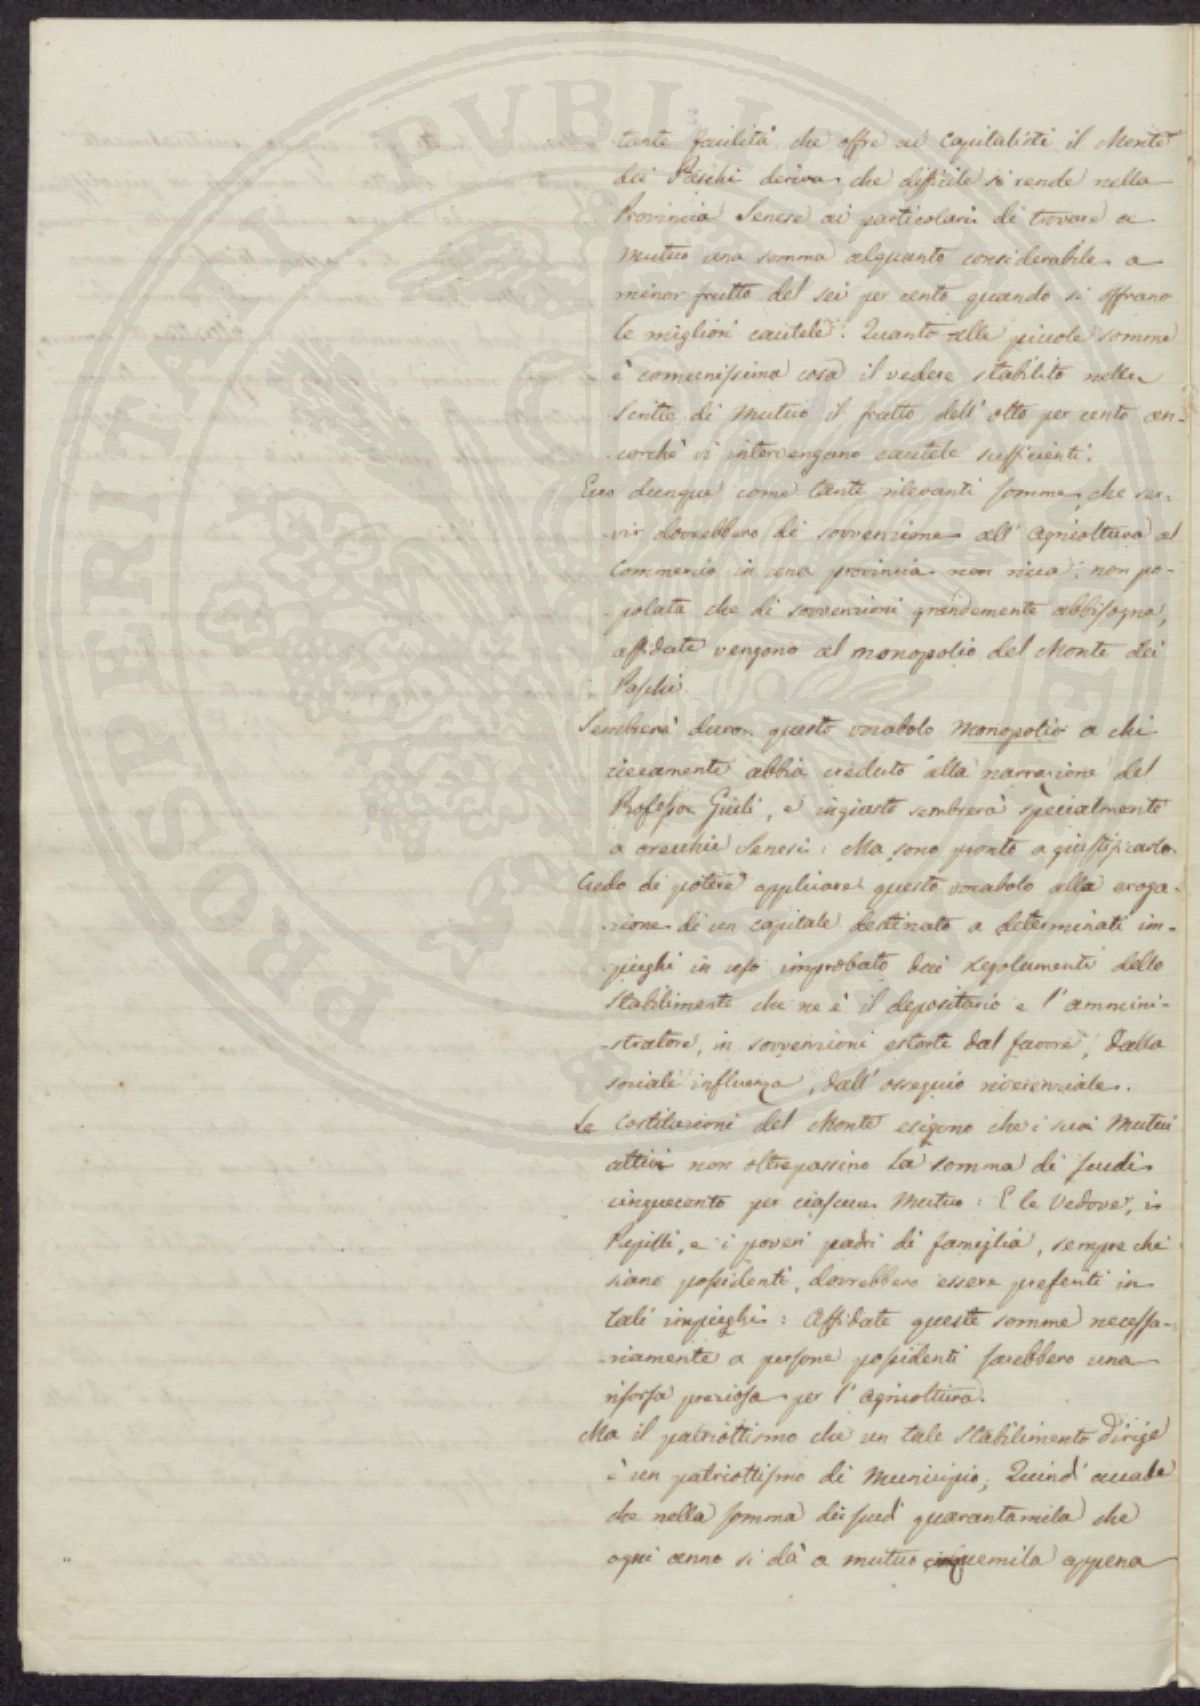 PROSPERITATI PVBLICAE
tante facilità che offre ai Capitalisti il Monte
dei Paschi deriva, che difficile si rende nella
Provincia Senese ai particolari di trovare a
mutuo una somma alquanto considerabile a
minor frutto del sei per cento quando si offrano
le migliori cautele. Quanto alle piccole somme
è comunissima cosa il vedere stabilito nelle
Scritte di Mutuo il frutto dell' otto per cento an-
-corchè vi intervengano cautele sufficienti.
Ecco dunque come tante rilevanti somme, che ser-
-vir dovrebbero di sovvenzione all' Agricoltura al
Commercio in una provincia non ricca; non po-
-polata che di sovvenzioni grandemente abbisogna,
affidate vengono al monopolio del Monte dei
Paschi.
Sembrerà duro questo vocabolo Monopolio a chi
ciecamente abbia creduto alla narrazione del
Professor Giuli, e ingiusto sembrerà specialmente
a orecchie Senesi: Ma sono pronto a giustificarlo.
Credo di potere applicare questo vocabolo alla eroga-
-zione di un capitale destinato a determinati im-
-pieghi in uso improbato dai regolamenti dello
Stabilimento che ne è il depositario e l' ammini-
-stratore, in sovvenzioni estorte dal favore, dalla
sociale influenza, dall' ossequio riverenziale.
Le Costituzioni del Monte esigono che i suoi Mutui
attivi non oltrepassino la somma di scudi
cinquecento per ciascun Mutuo: E le Vedove, i
Pupilli, e i poveri padri di famiglia, sempre che
siano possidenti, dovrebbero essere preferiti in
tali impieghi: Affidate queste somme necessa-
-riamente a persone possidenti sarebbero una
risorsa preziosa per l' agricoltura.
Ma il patriottismo che un tale Stabilimento dirige
è un patriottismo di Municipio; Quindi accade
che nella somma dei scudi quarantamila che
ogni anno si dà a mutuo cinquemila appena